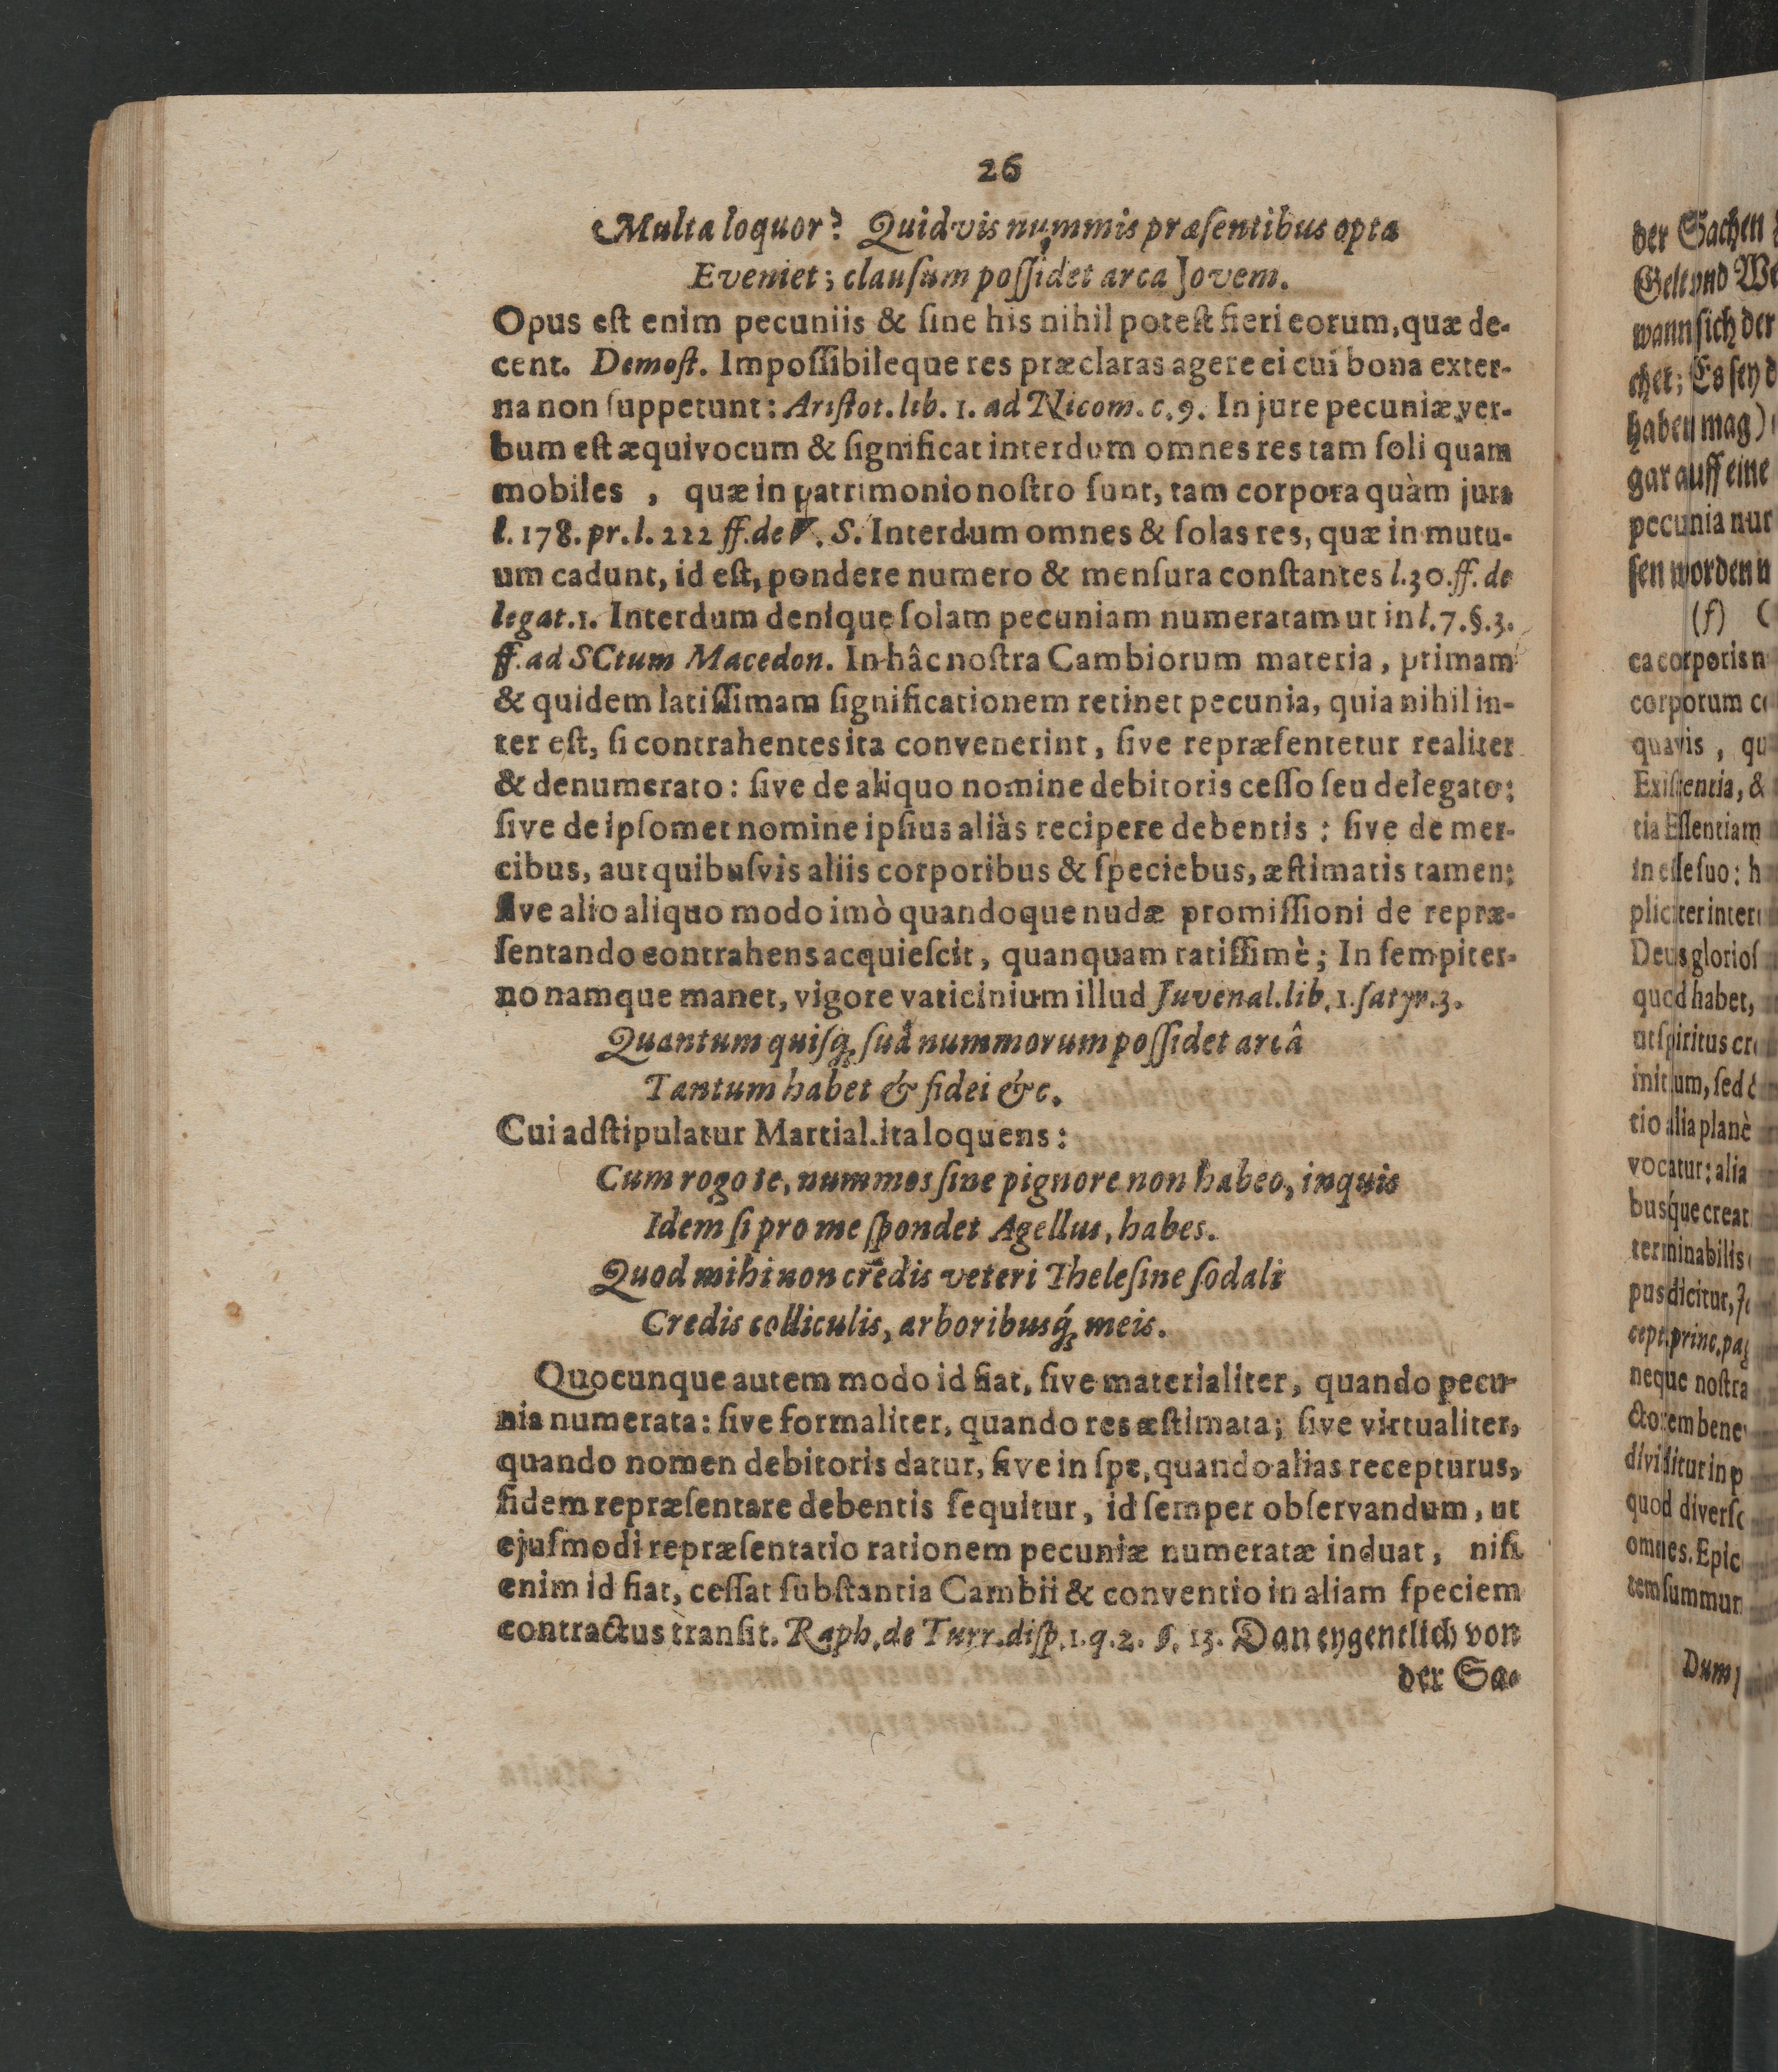 26
Multa loquor? Quidvis nummis præsentibus opta
Eveniet; clausum possidet arca Jovem.
Opus est enim pecuniis & sine his nihil potest fieri eorum, quæ de-
cent. Demost. Impossibileque res præclaras agere ei cui bona exter-
na non suppetunt: Aristot. lib. 1. ad Nicom. c. 9. In jure pecuniæ ver-
bum est æquivocum & significat interdum omnes res tam soli quam
mobiles, quæ in patrimonio nostro sunt, tam corpora quàm jura
l. 178. pr. l. 222 ff. de V. S. Interdum omnes & solas res, quæ in mutu-
um cadunt, id est, pondere numero & mensura constantes l. 30. ff. de
legat. 1. Interdum denique solam pecuniam numeratam ut in l. 7. §. 3.
ff. ad SCtum Macedon. In hâc nostra Cambiorum materia, primam
& quidem latissimam significationem retinet pecunia, quia nihil in-
ter est, si contrahentes ita convenerint, sive repræsentetur realiter
& denumerato: sive de aliquo nomine debitoris cesso seu delegato;
sive de ipsomet nomine ipsius aliàs recipere debentis: sive de mer-
cibus, aut quibusvis aliis corporibus & speciebus, æstimatis tamen;
sive alio aliquo modo imò quandoque nudæ promissioni de repræ-
sentando contrahens acquiescit, quanquam ratissimè; In sempiter-
no namque manet, vigore vaticinium illud Juvenal. lib. 1. satyr. 3.
Quantum quisq; suâ nummorum possidet arcâ
Tantum habet & fidei &c.
Cui adstipulatur Martial. ita loquens:
Cum rogo te, nummos sine pignore non habeo, inquis
Idem si pro me spondet Agellus, habes.
Quod mihi non credis veteri Thelesine sodali
Credis colliculis, arboribusq́; meis.
Quocunque autem modo id fiat, sive materialiter, quando pecu-
nia numerata: sive formaliter, quando res æstimata; sive virtualiter,
quando nomen debitoris datur, sive in spe, quando alias recepturus,
fidem repræsentare debentis sequitur, id semper observandum, ut
ejusmodi repræsentatio rationem pecuniæ numeratæ induat, nisi
enim id fiat, cessat substantia Cambii & conventio in aliam speciem
contractus transit. Raph. de Turr. disp. 1. q. 2. §. 13. Dan eygentlich von
der Sa-
der Sachen
Gelt und
wann sich der
chet; Es sey
haben mag)
gar auff eine
pecunia nur
sen worden
(f)
ca corporis
corporum
quavis,
Existentia, &
tia Essentiam
in esse suo:
pliciter
Deus
quod habet,
ut spiritus
initium, sed
tio alia planè
vocatur: alia
busque
terminabilis
pus dicitur,
cept. princ. pag
neque nostra
ctorem bene
dividitur in
quod
omnes.
tem
Dum